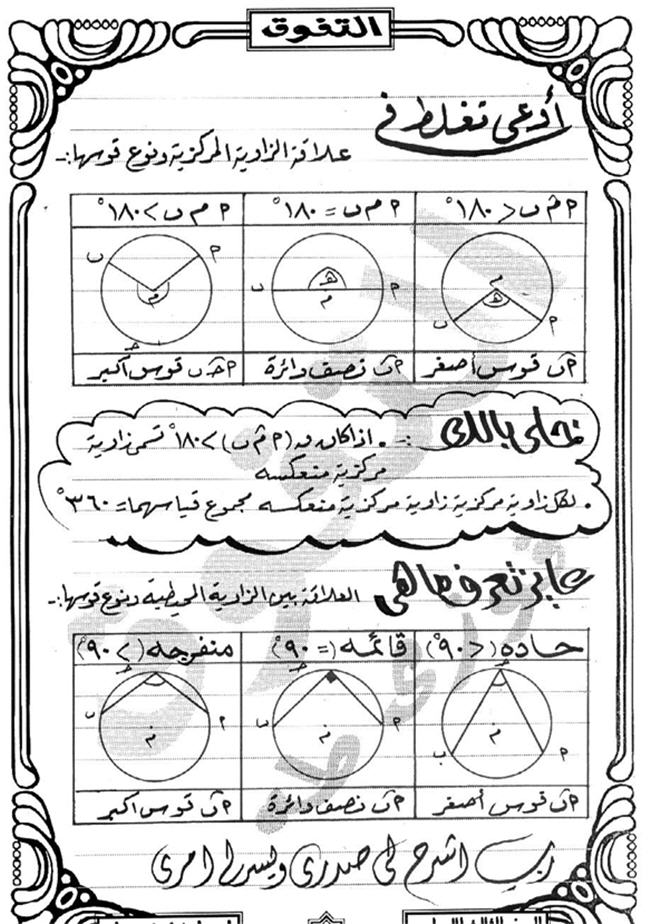 التفوق
أوعى تغلط في
علاقة الزاوية المركزية ونوع قوسها:-
م (أ م ب) < ١٨٠°
أ م ب = ١٨٠°
أ م ب > ١٨٠°
أ ب قوس أصغر
أ ب نصف دائرة
أ حـ ب قوس أكبر
تخلى بالك :- • اذا كان ق (أ م ب) > ١٨٠° تسمى زاوية
مركزية منعكسه
• لكل زاوية مركزية زاوية مركزية منعكسه مجموع قياسهما = ٣٦٠°
عايز تعرف ما هى العلاقة بين الزاوية المحيطية ونوع قوسها:-
حاده (< ٩٠°)
قائمه (= ٩٠°)
منفرجه (> ٩٠°)
أ ب قوس أصغر
أ ب نصف دائرة
أ ب قوس اكبر
رب اشرح لى صدرى ويسر لى امرى